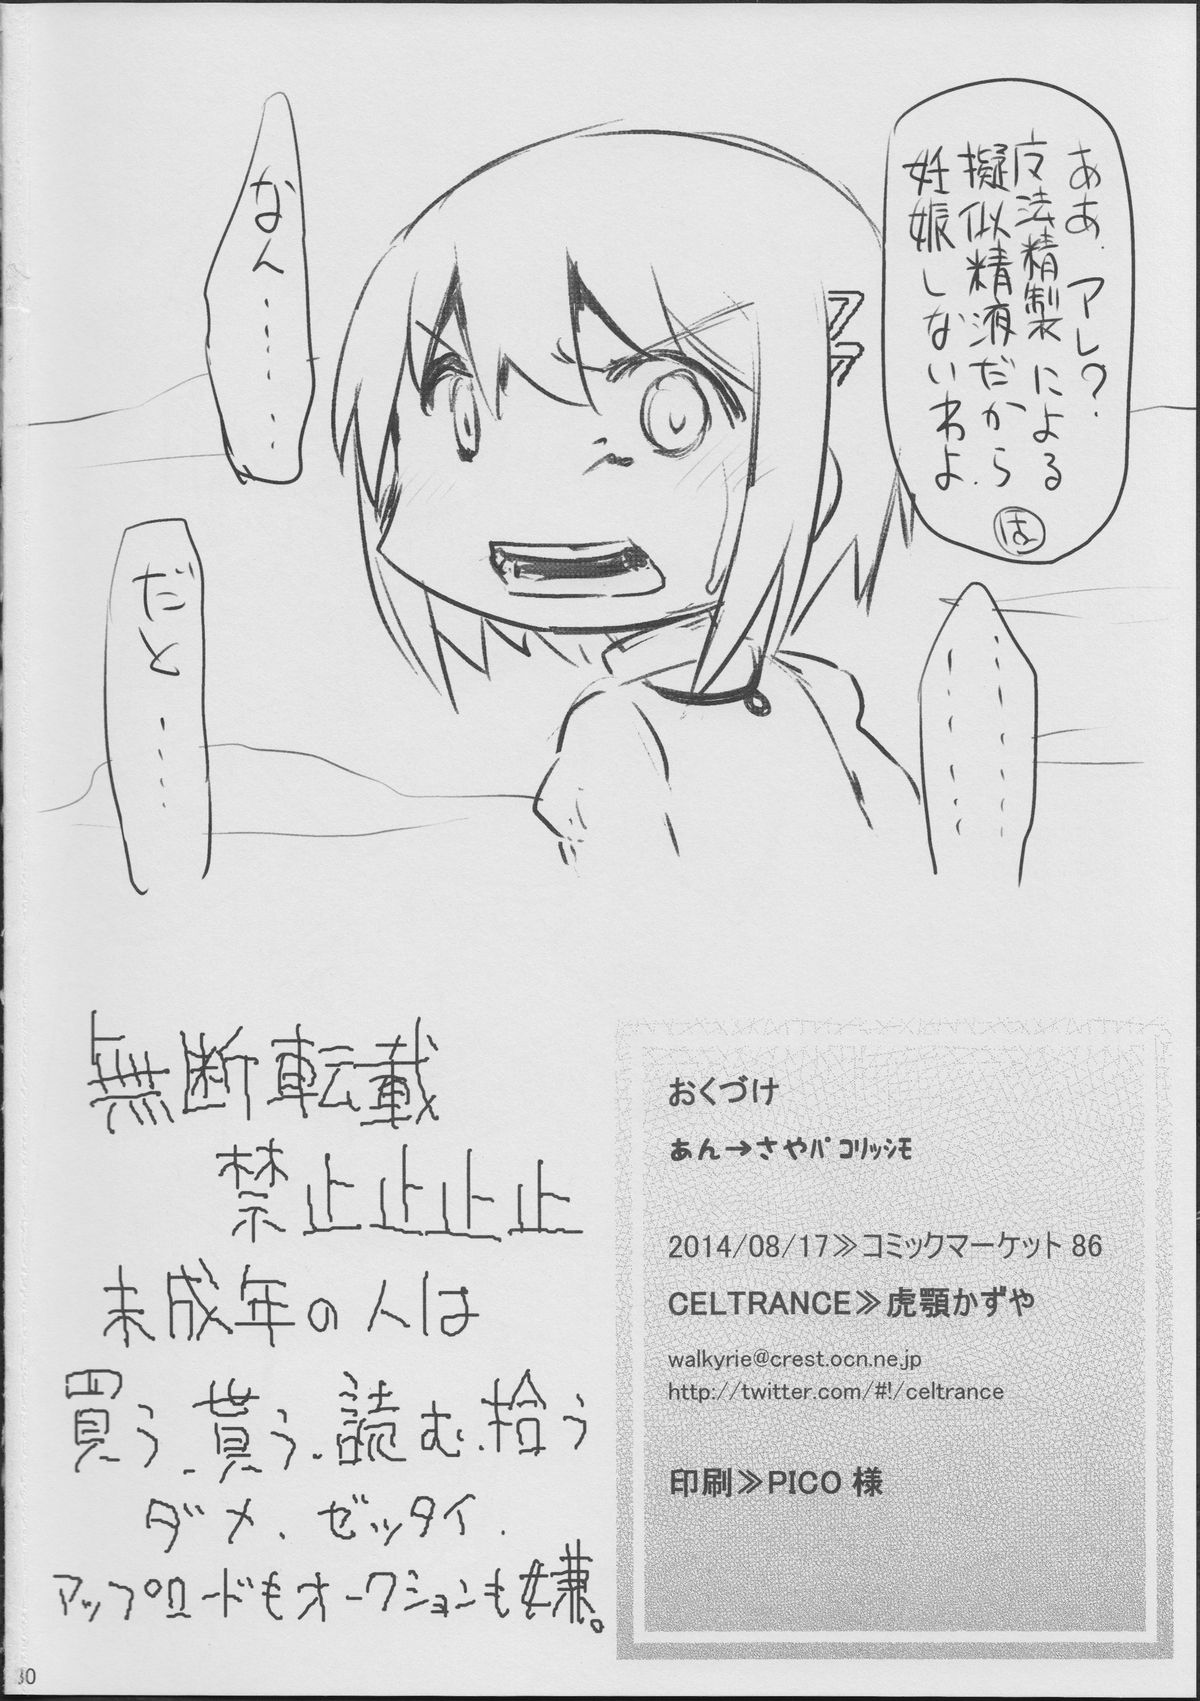 ああ、アレ?
魔法精製による
擬似精液だから
妊娠しないわよ
ほ
ファ
なん………
だと……
…………
無断転載
禁止止止止
未成年の人は
買う、貰う、読む、拾う
ダメ、ゼッタイ、
アップロードもオークションも嫌。
おくづけ
あん→さやﾊﾟｺﾘｯｼﾓ
2014/08/17≫コミックマーケット 86
CELTRANCE≫虎顎かずや
walkyrie@crest.ocn.ne.jp
http://twitter.com/#!/celtrance
印刷≫PICO 様
30